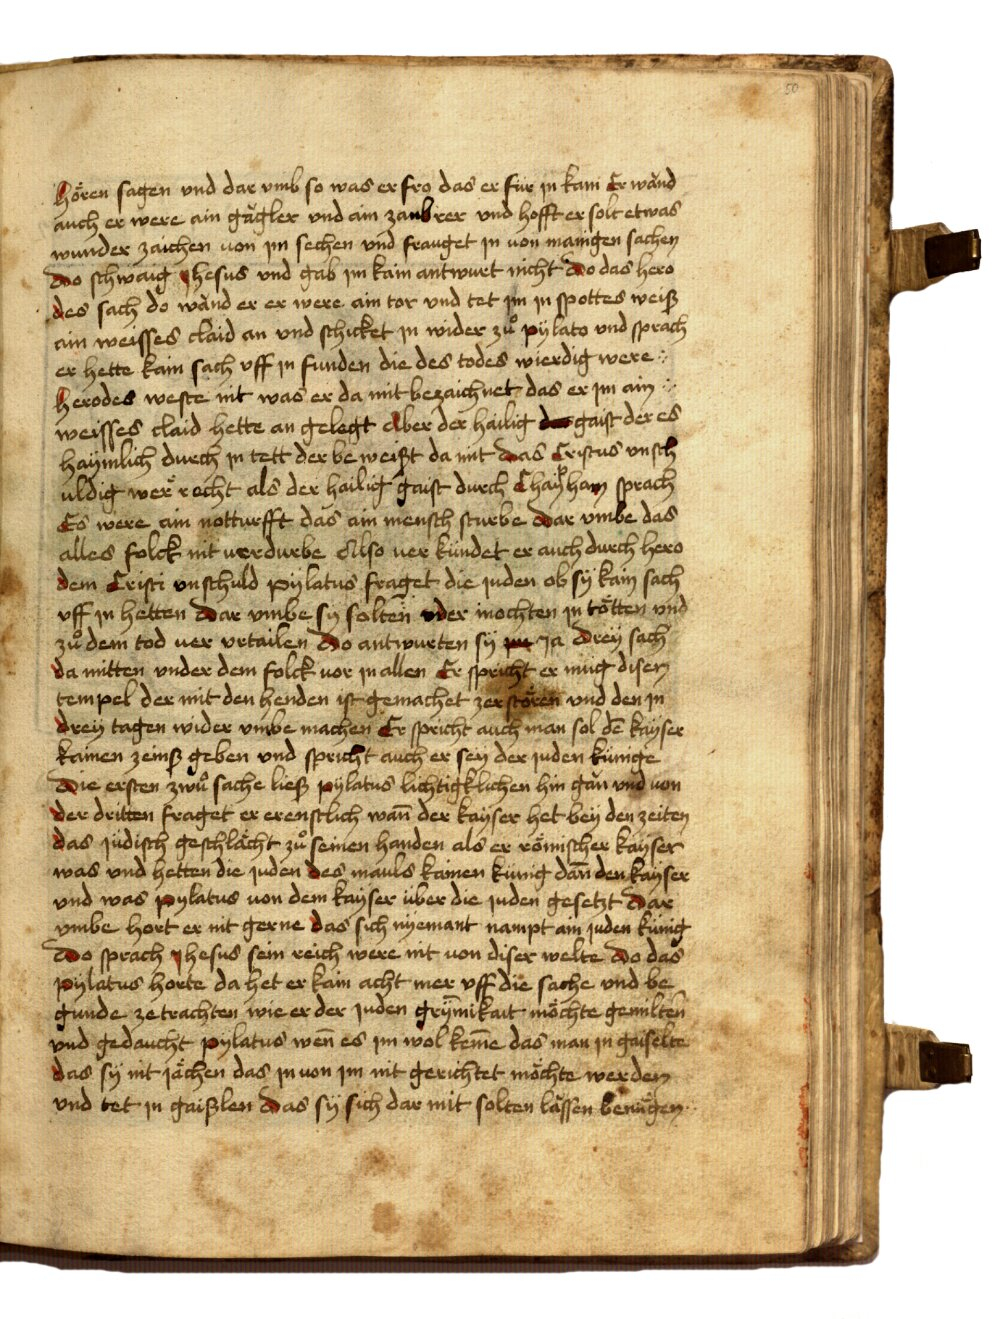 50
hören sagen vnd dar vmb so was er fro das er für jn kam Er wänd
auch er were ain gägler vnd ain zaubrer vnd hofft er solt etwas
wunder zaichen von jm sechen vnd frauget jn von mangen sachen
Do schwaig Jhesus vnd gab jm kain antwurt nicht Do das hero
des sach do wänd er er were ain tor vnd tet jm jn spottes weiß
ain weisses claid an vnd schicket jn wider zů pylato vnd sprach
er hette kain sach vff jn funden die des todes wierdig were
Herodes weste nit was er da mit bezaichnet das er jm ain
weisses claid hette an gelegt Aber der hailig gaist der es
haymlich durch jn tett der beweißt da mit das Cristus vnsch
uldig wer recht als der hailig gaist durch Chaypham sprach
Es were ain notturfft das ain mensch sturbe dar vmbe das
alles folck nit verdurbe Also ver kündet er auch durch hero
dem Cristi vnschuld Pylatus fraget die juden ob sy kain sach
vff jn hetten dar vmbe sy solten oder mochten jn tötten vnd
zů dem tod ver vrtailen Do antwurten sy Ja drey sach
da mitten vnder dem folck vor jn allen Er spricht er müg disen
tempel der mit den henden ist gemachet zerstören vnd den jn
drey tagen wider vmbe machen Er spricht auch man sol dē kayser
kainen zeinß geben vnd spricht auch er sey der juden künige
Die ersten zwů sache ließ pylatus lichtigklichen hin gän vnd von
der dritten fraget er erenstlich wañ der kayser het bey den zeiten
das jüdisch geschlächt zů seinen handen als er römischer kayser
was vnd hetten die juden des mauls kainen künig dañ den kayser
vnd was pylatus von dem kayser über die juden gesetzt Dar
vmbe hort er nit gerne das sich nyemant nampt ain juden künig
Do sprach Jhesus sein reich were nit von diser welte Do das
pylatus horte da het er kain acht mer vff die sache vnd be
gunde ze trachten wie er der juden grȳmikait möchte gemiltē
vnd gedaucht pylatus weñ es jm wol keme das man jn gaiselte
das sy nit jächen das jn von jm nit gerichtet möchte werden
vnd tet jn gaißlen das sy sich dar mit solten lässen benügen